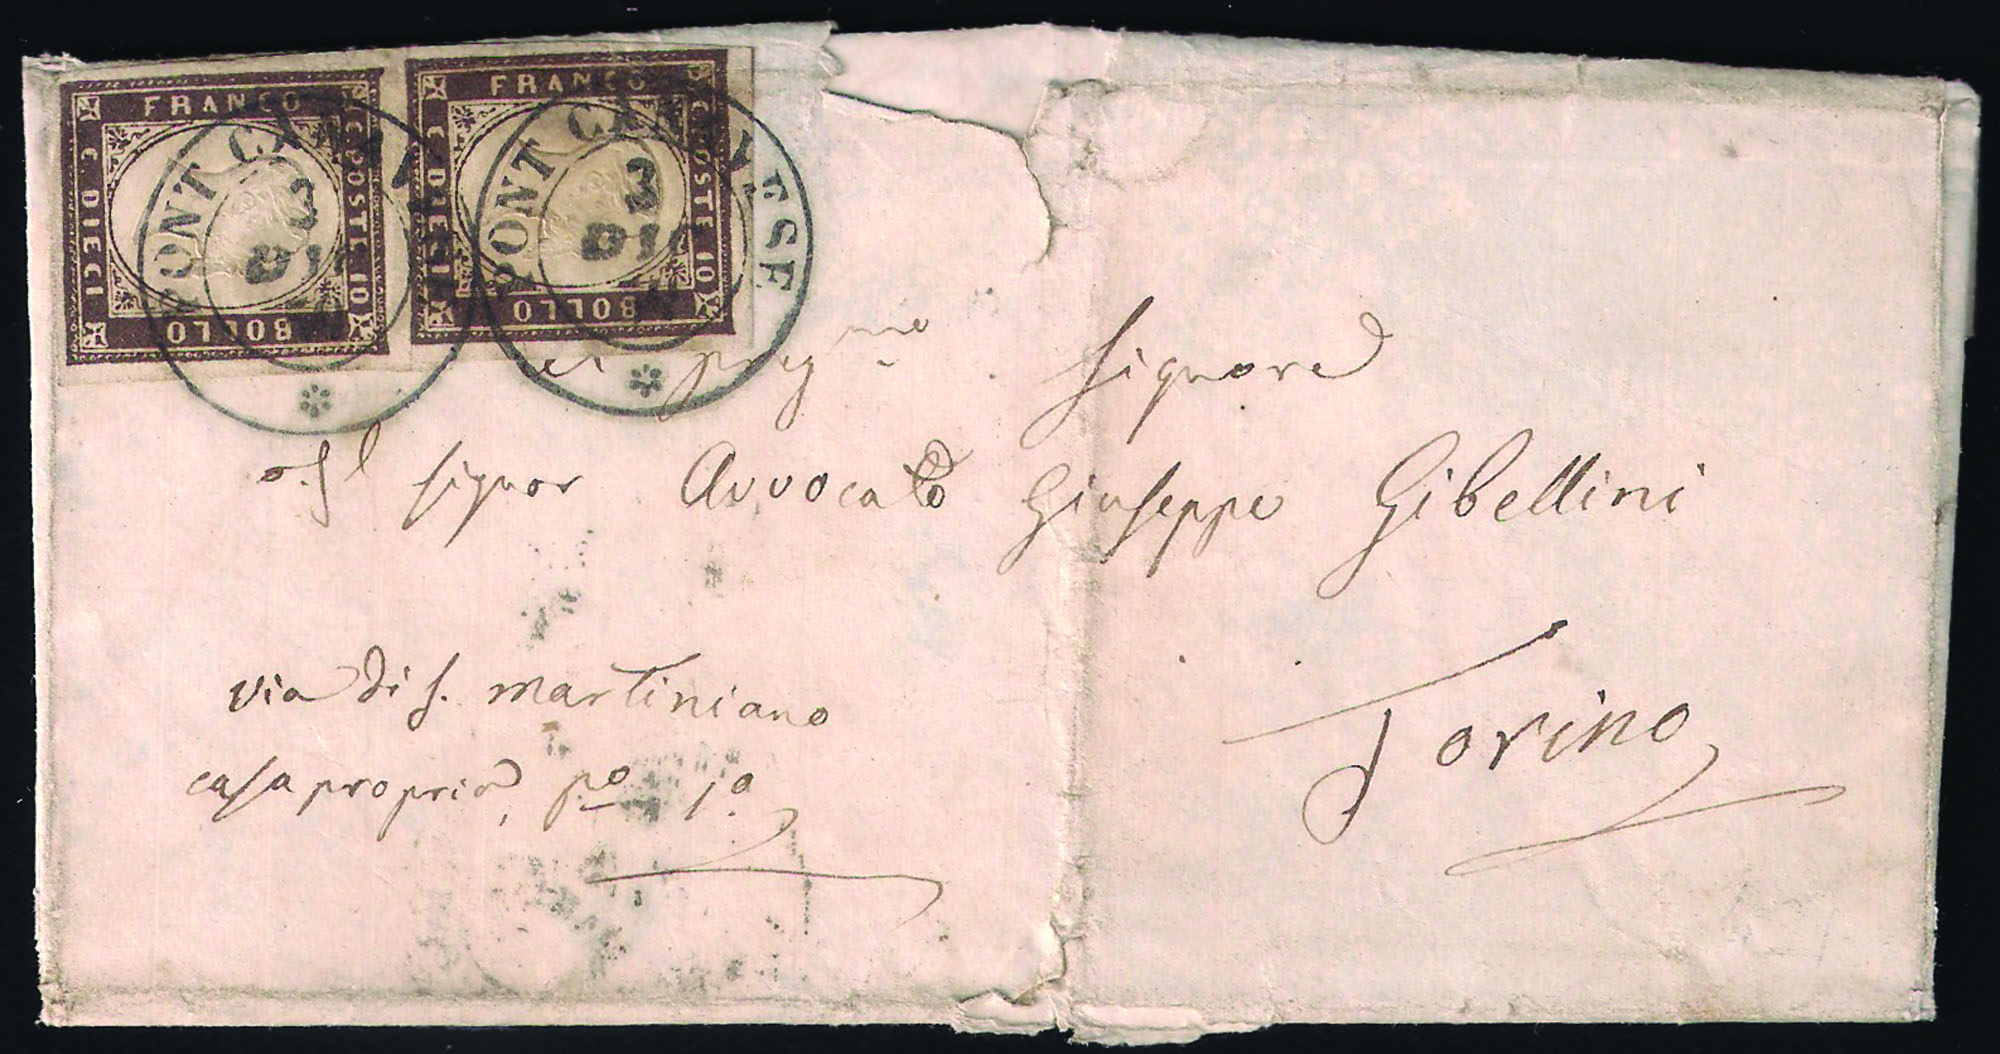 FRANCO
C. POSTE 10
BOLLO
C. DIECI
FRANCO
C. POSTE 10
BOLLO
C. DIECI
PONT CANAVESE
3
DIC
PONT CANAVESE
3
DIC
preg.mo Signore
Il Signor Avvocato Giuseppe Gibellini
Torino
via di S. Martiniano
casa propria, p.o 1.o